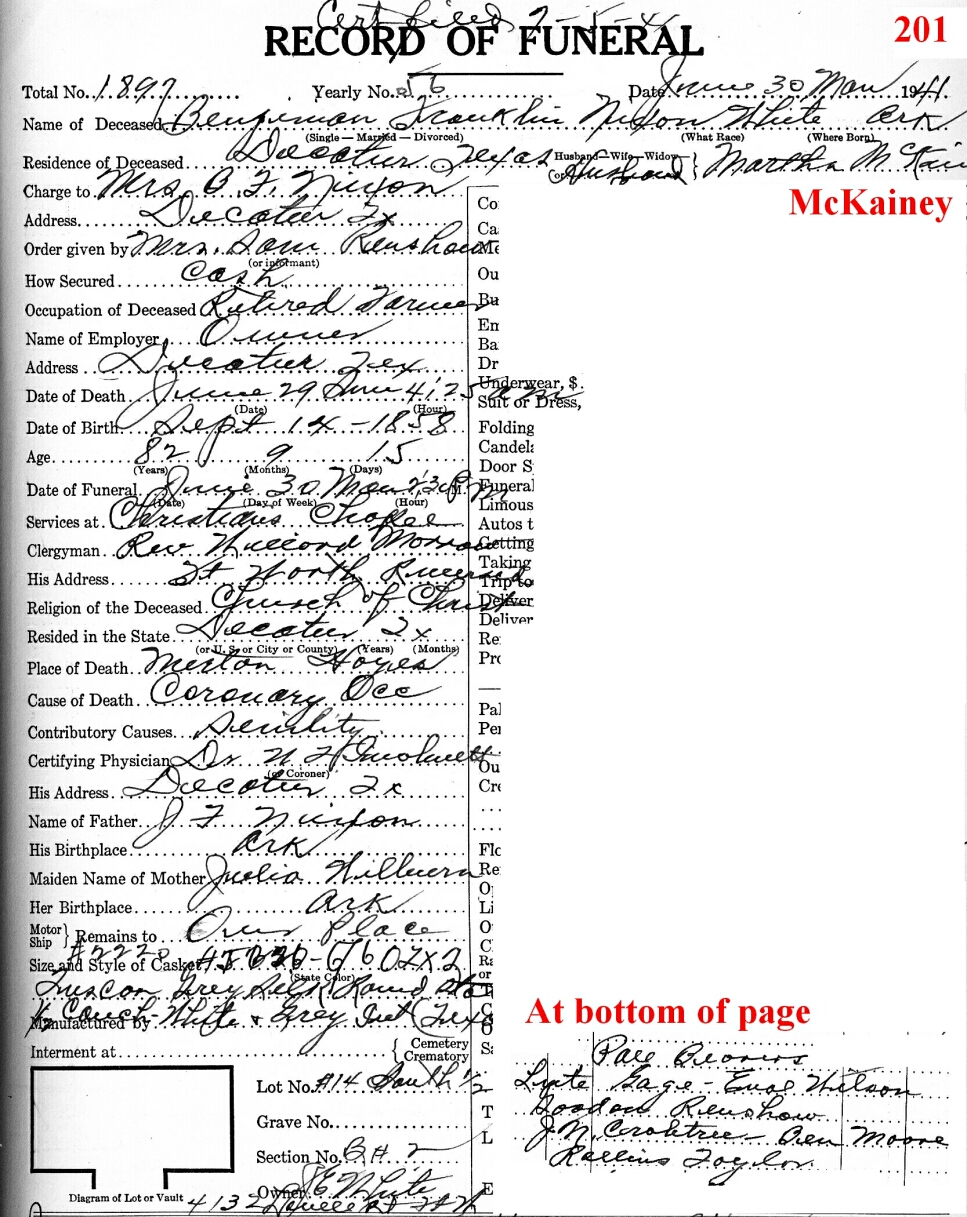 Certified 7-5-4
RECORD OF FUNERAL
201
Total No. 1897 Yearly No. 56 Date June 30 Mon 1941
Name of Deceased Benjiman Franklin Nixon White Ark
(Single — Married — Divorced) (What Race) (Where Born)
Residence of Deceased Decatur Texas Husband—Wife—Widow or Husband } Martha McKain
Charge to Mrs. B. F. Nixon
McKainey
Address Decatur Tx
Order given by Mrs. Sam Renshaw
(or informant)
How Secured Cash
Occupation of Deceased Retired Farmer
Name of Employer Owner
Address Decatur Tex
Date of Death June 29 Sun 4:25 am
(Date) (Hour)
Date of Birth Sept 14 - 1858
Age 82 9 15
(Years) (Months) (Days)
Date of Funeral June 30 Mon 2:30 P.M.
(Date) (Day of Week) (Hour)
Services at Christians Chapel
Clergyman Rev Morrow
His Address Ft Worth
Religion of the Deceased Church of Christ
Resided in the State Decatur Tx
(or U. S. or City or County) (Years) (Months)
Place of Death
Cause of Death Coronary Occ
Contributory Causes Senility
Certifying Physician Dr.
(or Coroner)
His Address Decatur Tx
Name of Father J F Nixon
His Birthplace Ark
Maiden Name of Mother Julia Wilburn
Her Birthplace Ark
Motor Ship } Remains to Our Place
#2220
Size and Style of Casket
(State Color)
Tuscon Grey Silk Round
Manufactured by Couch White & Grey Int
Interment at { Cemetery Crematory
Lot No. #14 South 1/2
Grave No.
Section No. BH 2
Owner J E White
Diagram of Lot or Vault 4132
Underwear, $.
Suit or Dress,
Folding
Candela
Door S
Funeral
Limous
Autos t
Getting
Taking
Trip to
Deliver
Deliver
At bottom of page
Pall Bearers
Lyte Gage - Enoe Wilson
Gordon Renshaw
J.N. Crabtree - Ben Moore
Rollins Taylor